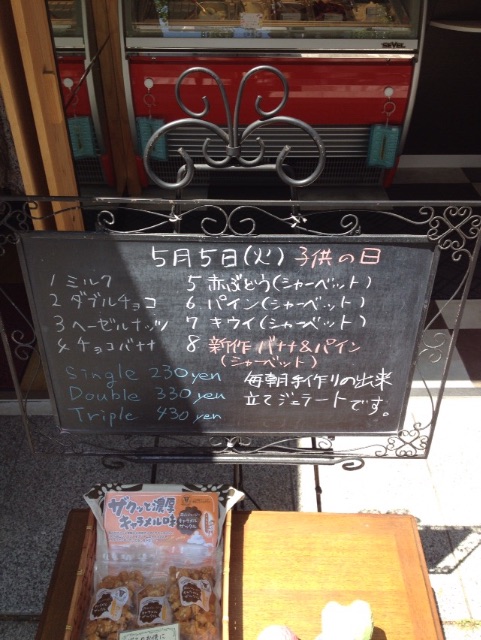 5月5日(火) 子供の日
1 ミルク
2 ダブルチョコ
3 ヘーゼルナッツ
4 チョコバナナ
5 赤ぶどう(シャーベット)
6 パイン(シャーベット)
7 キウイ(シャーベット)
8 新作 バナナ&パイン
(シャーベット)
Single 230yen
Double 330yen
Triple 430yen
毎朝手作りの出来
立てジェラートです。
ザクッと濃厚
キャラメル味